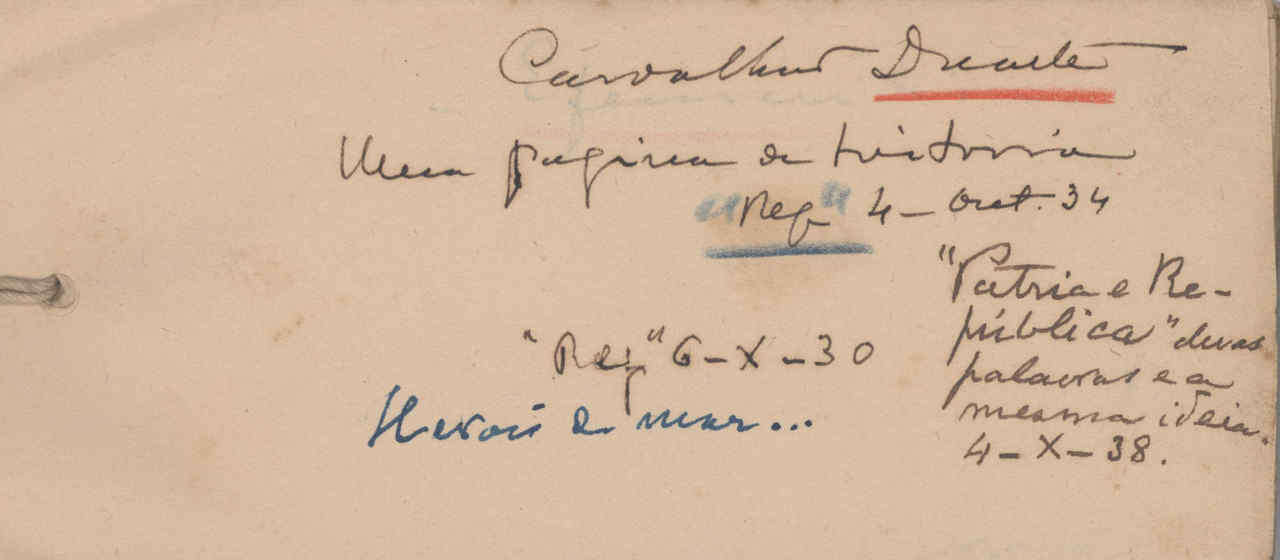 Carvalhão Duarte
Uma pagina da historia
"Rep" 4 – Out. 34
"Patria e Re-
pública" duas
palavras e a
mesma ideia.
4 – X – 38.
"Rep" 6 – X – 30
Herois do mar...